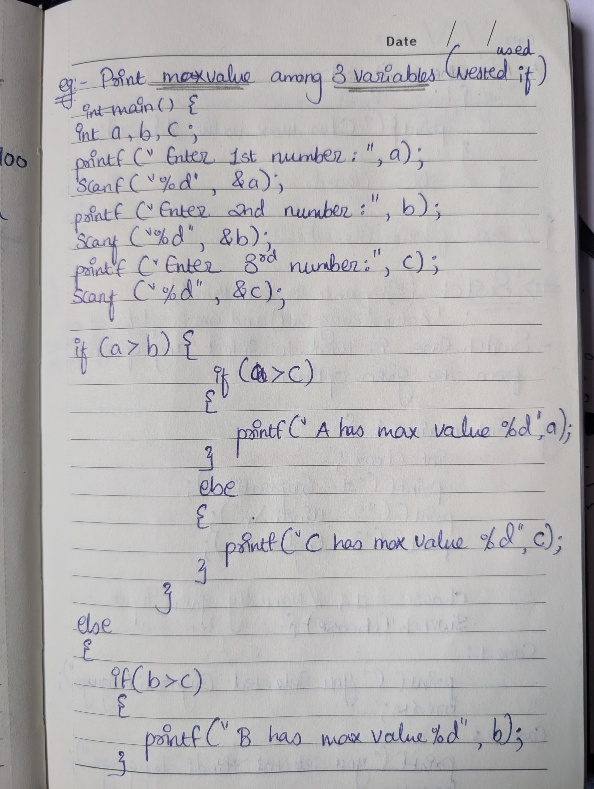 Date / /
eg:- Print maxvalue among 3 variables (Nested if) used
int main() {
int a, b, c;
printf (" Enter 1st number : ", a);
Scanf ("%d", &a);
printf ("Enter 2nd number :", b);
Scanf ("%d", &b);
printf ("Enter 3rd number:", c);
Scanf ("%d", &c);
if (a>b) {
if (a>c)
{
printf(" A has max value %d", a);
}
else
{
printf("C has max value %d", c);
}
}
else
{
if(b>c)
{
printf(" B has max value %d", b);
}